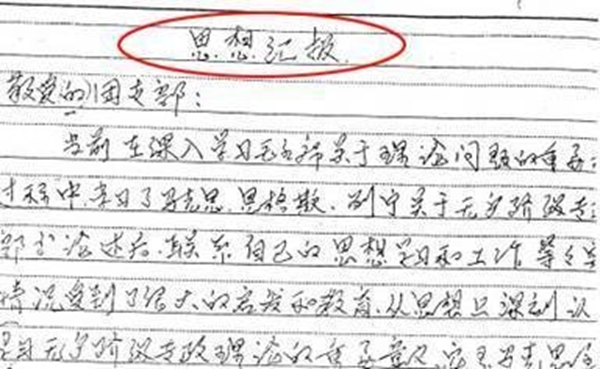 思想汇报
敬爱的团支部:
当前在深入学习毛主席关于理论问题的重要
过程中,学习了马克思、恩格斯、列宁关于无产阶级专
部分论述后,联系自己的思想学习和工作等
情况受到了很大的启发和教育,从思想上深刻认
无产阶级专政理论的重要意义,